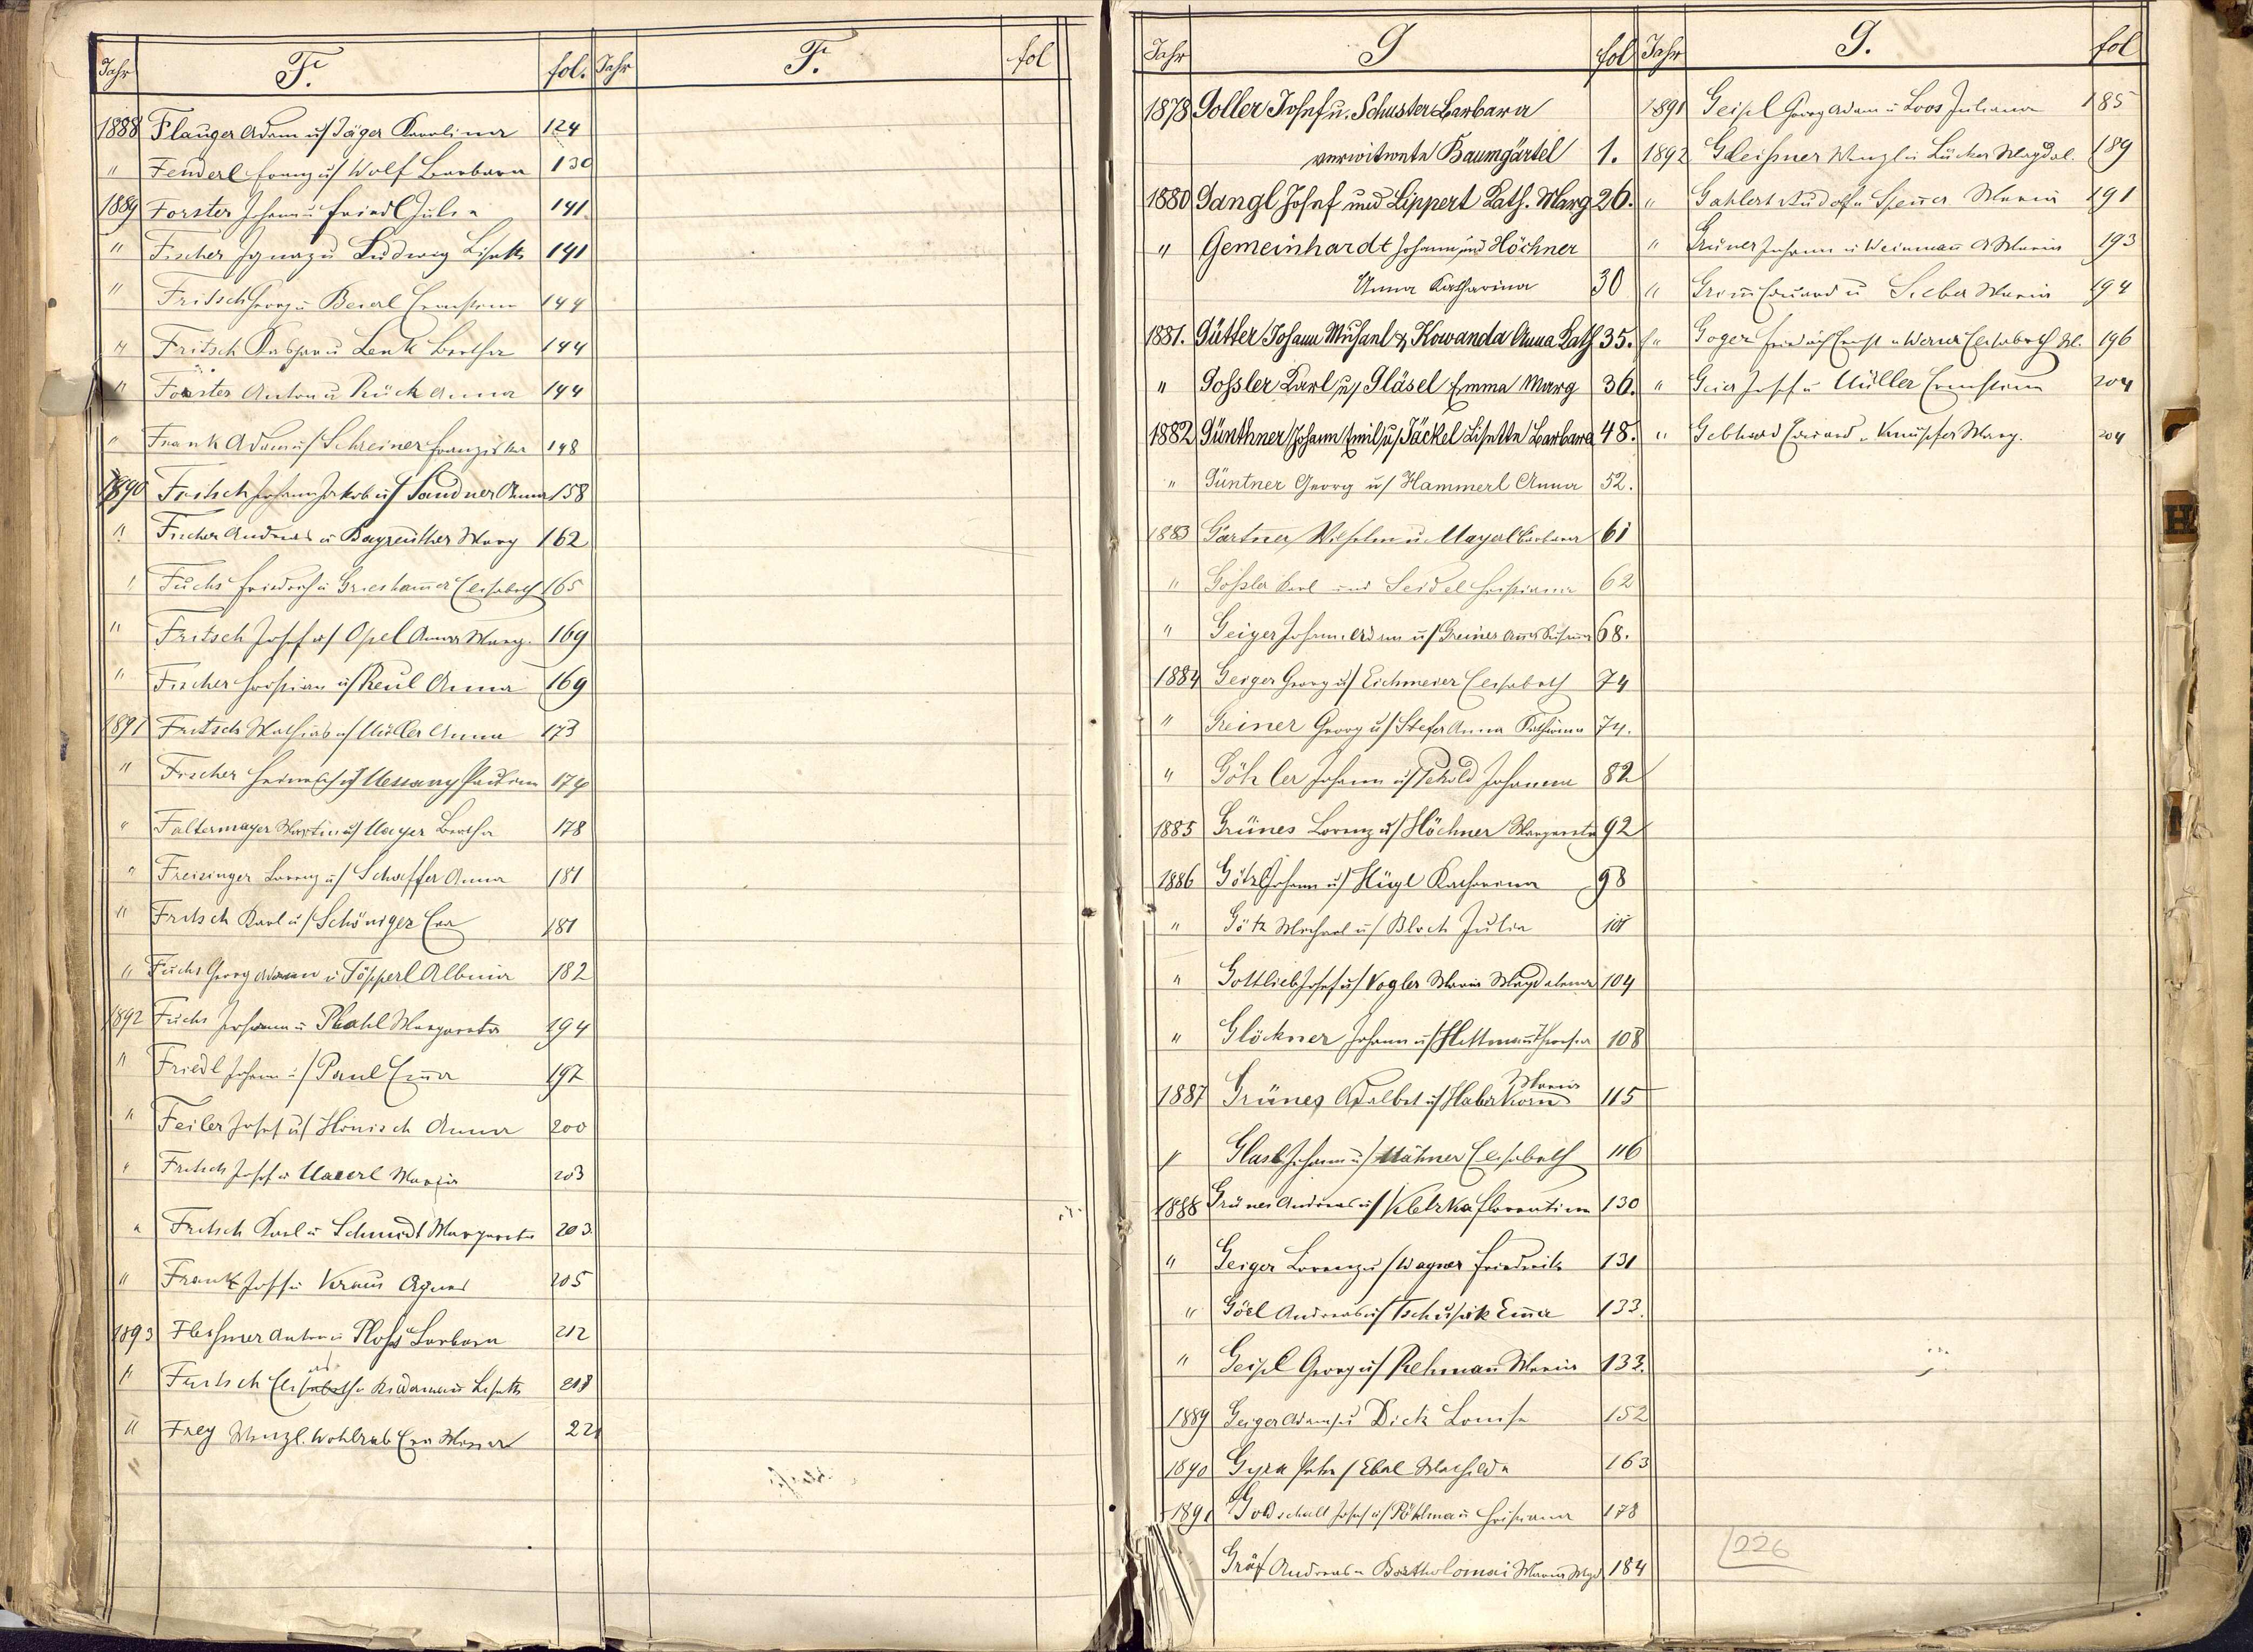 Jahr F. fol. Jahr F. fol
1888 Flauger Adam u/ Jäger Karolina 124
" Fenderl Franz u/ Wolf Barbara 130
1889 Forster Johann u Friedl Julia 141
" Fischer Ignaz u Ludwig Lisette 141
" Fritsch Georg u Beierl Ernestine 144
" Fritsch Kaspar u Lenk Bertha 144
" Forster Anton u Rück Anna 144
" Frank Adam u/ Schreiner Franziska 148
1890 Fritsch Johann Jakob u/ Sandner Anna 158
" Fischer Andreas u Bayreuther Marg 162
" Fuchs Friedrich u Griesham̅er Elisabeth 165
" Fritsch Josef u/ Opel Anna Marg. 169
" Fischer Christian u/ Reul Anna 169
1891 Fritsch Mathias u/ Müller Anna 173
" Fischer Heinrich u/ Messany Pauline 174
" Faltermayer Martin u/ Mayer Bertha 178
" Freisinger Lorenz u/ Schaffer Anna 181
" Fritsch Karl u/ Schöniger Eva 181
" Fuchs Georg Adam u Töpperl Albina 182
1892 Fuchs Johann u Plahl Margareta 194
" Friedl Johann u/ Paul Em̅a 197
" Feiler Josef u/ Hönisch Anna 200
" Fritsch Josef u Maierl Maria 203
" Fritsch Karl u Schmidt Margareta 203.
" Frank Josef u Kraus Agnes 205
1893 Fleissner Anton u Ploss Barbara 212
" Fritsch Lisette 218
" Frey Wenzl. Wohlrab Eva 221
"
Jahr G fol Jahr G. fol
1878 Goller Josef u. Schuster Barbara
verwitwete Baumgärtel 1.
1880 Gangl Josef und Lippert Kath. Marg 26.
" Gemeinhardt Johann und Höchner
Anna Katharina 30
1881. Gütter Johann Michael & Kowanda Anna Kath 35.
" Gossler Karl u/ Gläsel Emma Marg 36.
1882 Günthner Johann Emil u/ Jäckel Lisette Barbara 48.
" Güntner Georg u/ Hammerl Anna 52.
1883 Gärtner Wilhelm u Mayerl Barbara 61
" Gossler Karl und Seidel Christiana 62
" Geiger Johann Adam u/ Greiner Anna 68.
1884 Geiger Georg u/ Eichmeier Elisabeth 74
" Greiner Georg u/ Stefer Anna Katharina 74.
" Göhler Johann u/ Petzold Johanna 82
1885 Grünes Lorenz u/ Höchner Margareta 92
1886 Götzl Johann u/ Hügl Katharina 98
" Götz Michael u/ Bloch Julia 101
" Gottlieb Josef u/ Vogler Maria Magdalena 104
" Glöckner Johann u/ Hettman̅ Theresia 108
1887 Grünes Adalbert u/ Haberkorn Maria 115
" Glassl Johann u/ Mähner Elisabeth 116
1888 Grünes Andreas u/ Kletzka Florentine 130
" Geiger Lorenz u/ Wagner Friederike 131
" Görl Andreas u/ Tschusek Em̅a 133.
" Geipl Georg u/ Rehman̅ Maria 133.
1889 Geiger Adam u Dick Louise 152
1890 Gyra Peter / Ebert Mathilda 163
1891 Godschall Josef u/ Pöhlman̅ Christiana 178
Gräf Andreas u Bartholomäi Maria Mgd 184
1891 Geipl Georg Adam u Loos Juliana 185
1892 Gleissner Wenzl u Lücker Magdal. 189
" Gahlert Rudolf u Maria 191
" Grüner Johann u Weinman̅ A Maria 193
" Grim̅ Eduard u Sieber Maria 194
" Goger Friedrich Ernst u Werner Elisabeth 196
" Geier Josef u Müller Ernestine 204
" Gebhard Eduard u Knüpfer Marg. 204
226
H